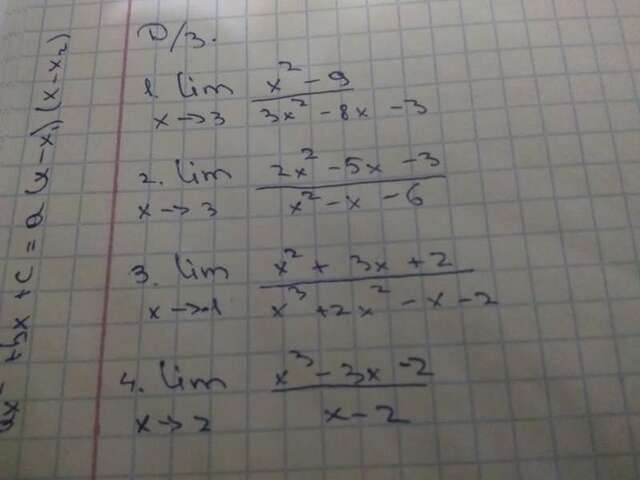 D/З.
1. lim x→3 (x² - 9)/(3x² - 8x - 3)
2. lim x→3 (2x² - 5x - 3)/(x² - x - 6)
3. lim x→-1 (x² + 3x + 2)/(x³ + 2x² - x - 2)
4. lim x→2 (x³ - 3x - 2)/(x - 2)
ax² + bx + c = a(x - x₁)(x - x₂)